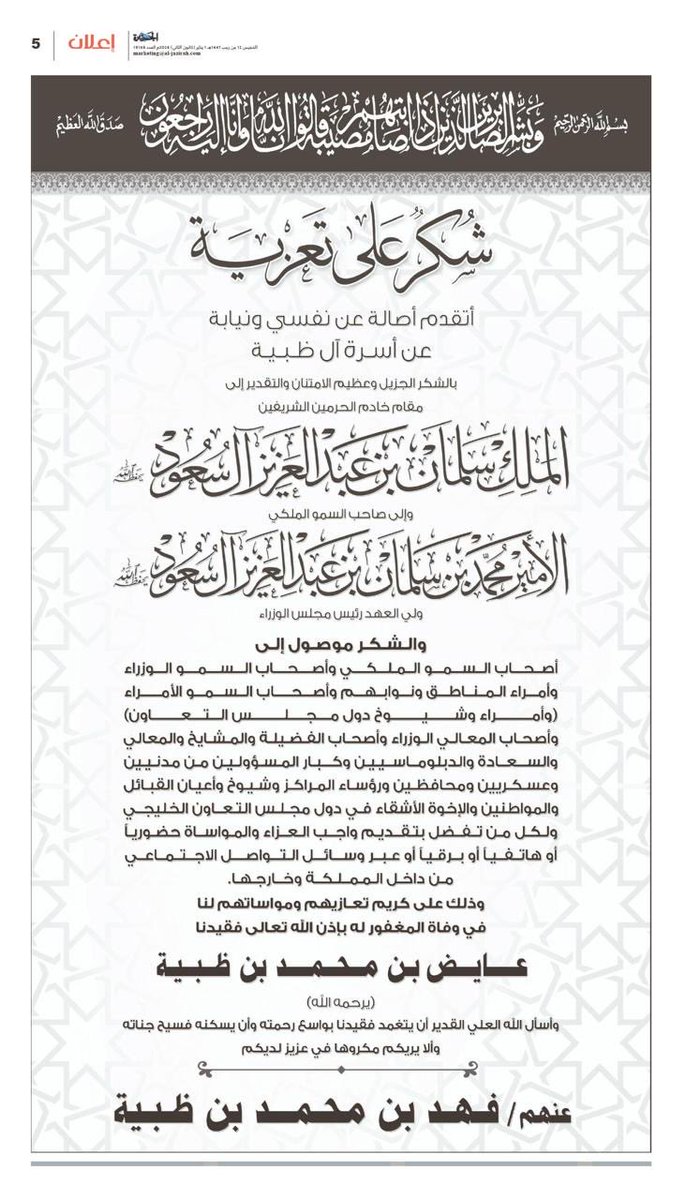 5
إعلان
الجزيرة
marketing@al-jazirah.com
بسم الله الرحمن الرحيم
وبشر الصابرين الذين إذا أصابتهم مصيبة قالوا إنا لله وإنا إليه راجعون
صدق الله العظيم
شكر على تعزية
أتقدم أصالة عن نفسي ونيابة
عن أسرة آل ظبية
بالشكر الجزيل وعظيم الامتنان والتقدير إلى
مقام خادم الحرمين الشريفين
الملك سلمان بن عبدالعزيز آل سعود حفظه الله
وإلى صاحب السمو الملكي
الأمير محمد بن سلمان بن عبدالعزيز آل سعود حفظه الله
ولي العهد رئيس مجلس الوزراء
والشكر موصول إلى
أصحاب السمو الملكي وأصحاب السمو الوزراء
وأمراء المناطق ونوابهم وأصحاب السمو الأمراء
(وأمراء وشيوخ دول مجلس التعاون)
وأصحاب المعالي الوزراء وأصحاب الفضيلة والمشايخ والمعالي
والسعادة والدبلوماسيين وكبار المسؤولين من مدنيين
وعسكريين ومحافظين ورؤساء المراكز وشيوخ وأعيان القبائل
والمواطنين والإخوة الأشقاء في دول مجلس التعاون الخليجي
ولكل من تفضل بتقديم واجب العزاء والمواساة حضورياً
أو هاتفياً أو برقياً أو عبر وسائل التواصل الاجتماعي
من داخل المملكة وخارجها.
وذلك على كريم تعازيهم ومواساتهم لنا
في وفاة المغفور له بإذن الله تعالى فقيدنا
عايض بن محمد بن ظبية
(يرحمه الله)
وأسأل الله العلي القدير أن يتغمد فقيدنا بواسع رحمته وأن يسكنه فسيح جناته
وألا يريكم مكروها في عزيز لديكم
عنهم/ فهد بن محمد بن ظبية